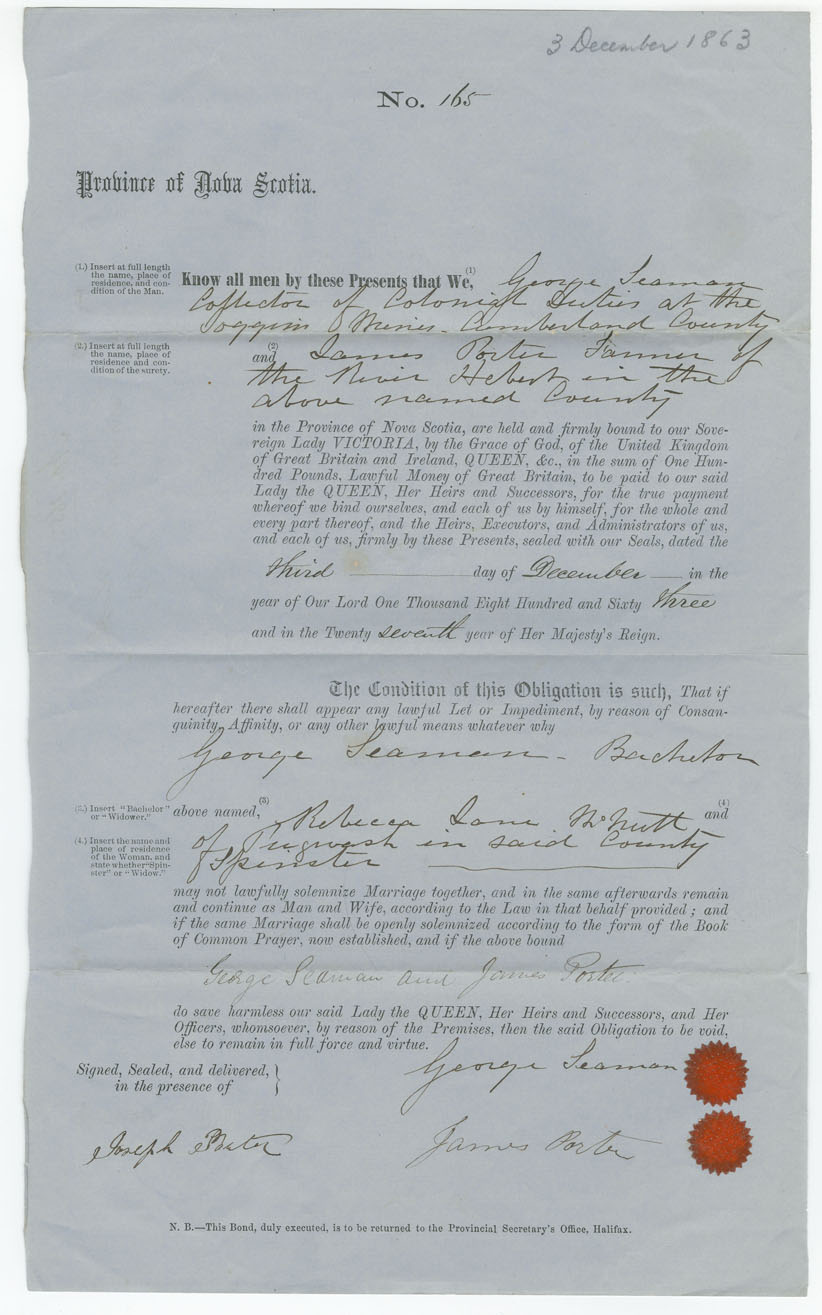 3 December 1863
No. 165
Province of Nova Scotia.
(1.) Insert at full length
the name, place of
residence, and con-
dition of the Man.
Know all men by these Presents that We,(1) George Seaman
Collector of Colonial Duties at the
Joggins Mines. Cumberland County
(2.) Insert at full length
the name, place of
residence and con-
dition of the surety.
and(2) James Porter Farmer of
the River Hebert in the
above named County
in the Province of Nova Scotia, are held and firmly bound to our Sove-
reign Lady VICTORIA, by the Grace of God, of the United Kingdom
of Great Britain and Ireland, QUEEN, &c., in the sum of One Hun-
dred Pounds, Lawful Money of Great Britain, to be paid to our said
Lady the QUEEN, Her Heirs and Successors, for the true payment
whereof we bind ourselves, and each of us by himself, for the whole and
every part thereof, and the Heirs, Executors, and Administrators of us,
and each of us, firmly by these Presents, sealed with our Seals, dated the
third day of December in the
year of Our Lord One Thousand Eight Hundred and Sixty three
and in the Twenty seventh year of Her Majesty's Reign.
The Condition of this Obligation is such, That if
hereafter there shall appear any lawful Let or Impediment, by reason of Consan-
guinity, Affinity, or any other lawful means whatever why
George Seaman - Bachelor
(3.) Insert "Bachelor"
or "Widower."
above named,(3) and(4)
Rebecca Jane McNutt
(4.) Insert the name and
place of residence
of the Woman, and
state whether "Spin-
ster" or "Widow."
of Pugwash in said County
Spinster
may not lawfully solemnize Marriage together, and in the same afterwards remain
and continue as Man and Wife, according to the Law in that behalf provided; and
if the same Marriage shall be openly solemnized according to the form of the Book
of Common Prayer, now established, and if the above bound
George Seaman and James Porter
do save harmless our said Lady the QUEEN, Her Heirs and Successors, and Her
Officers, whomsoever, by reason of the Premises, then the said Obligation to be void,
else to remain in full force and virtue.
George Seaman
Signed, Sealed, and delivered,
in the presence of
Joseph
James Porter
N. B.—This Bond, duly executed, is to be returned to the Provincial Secretary's Office, Halifax.